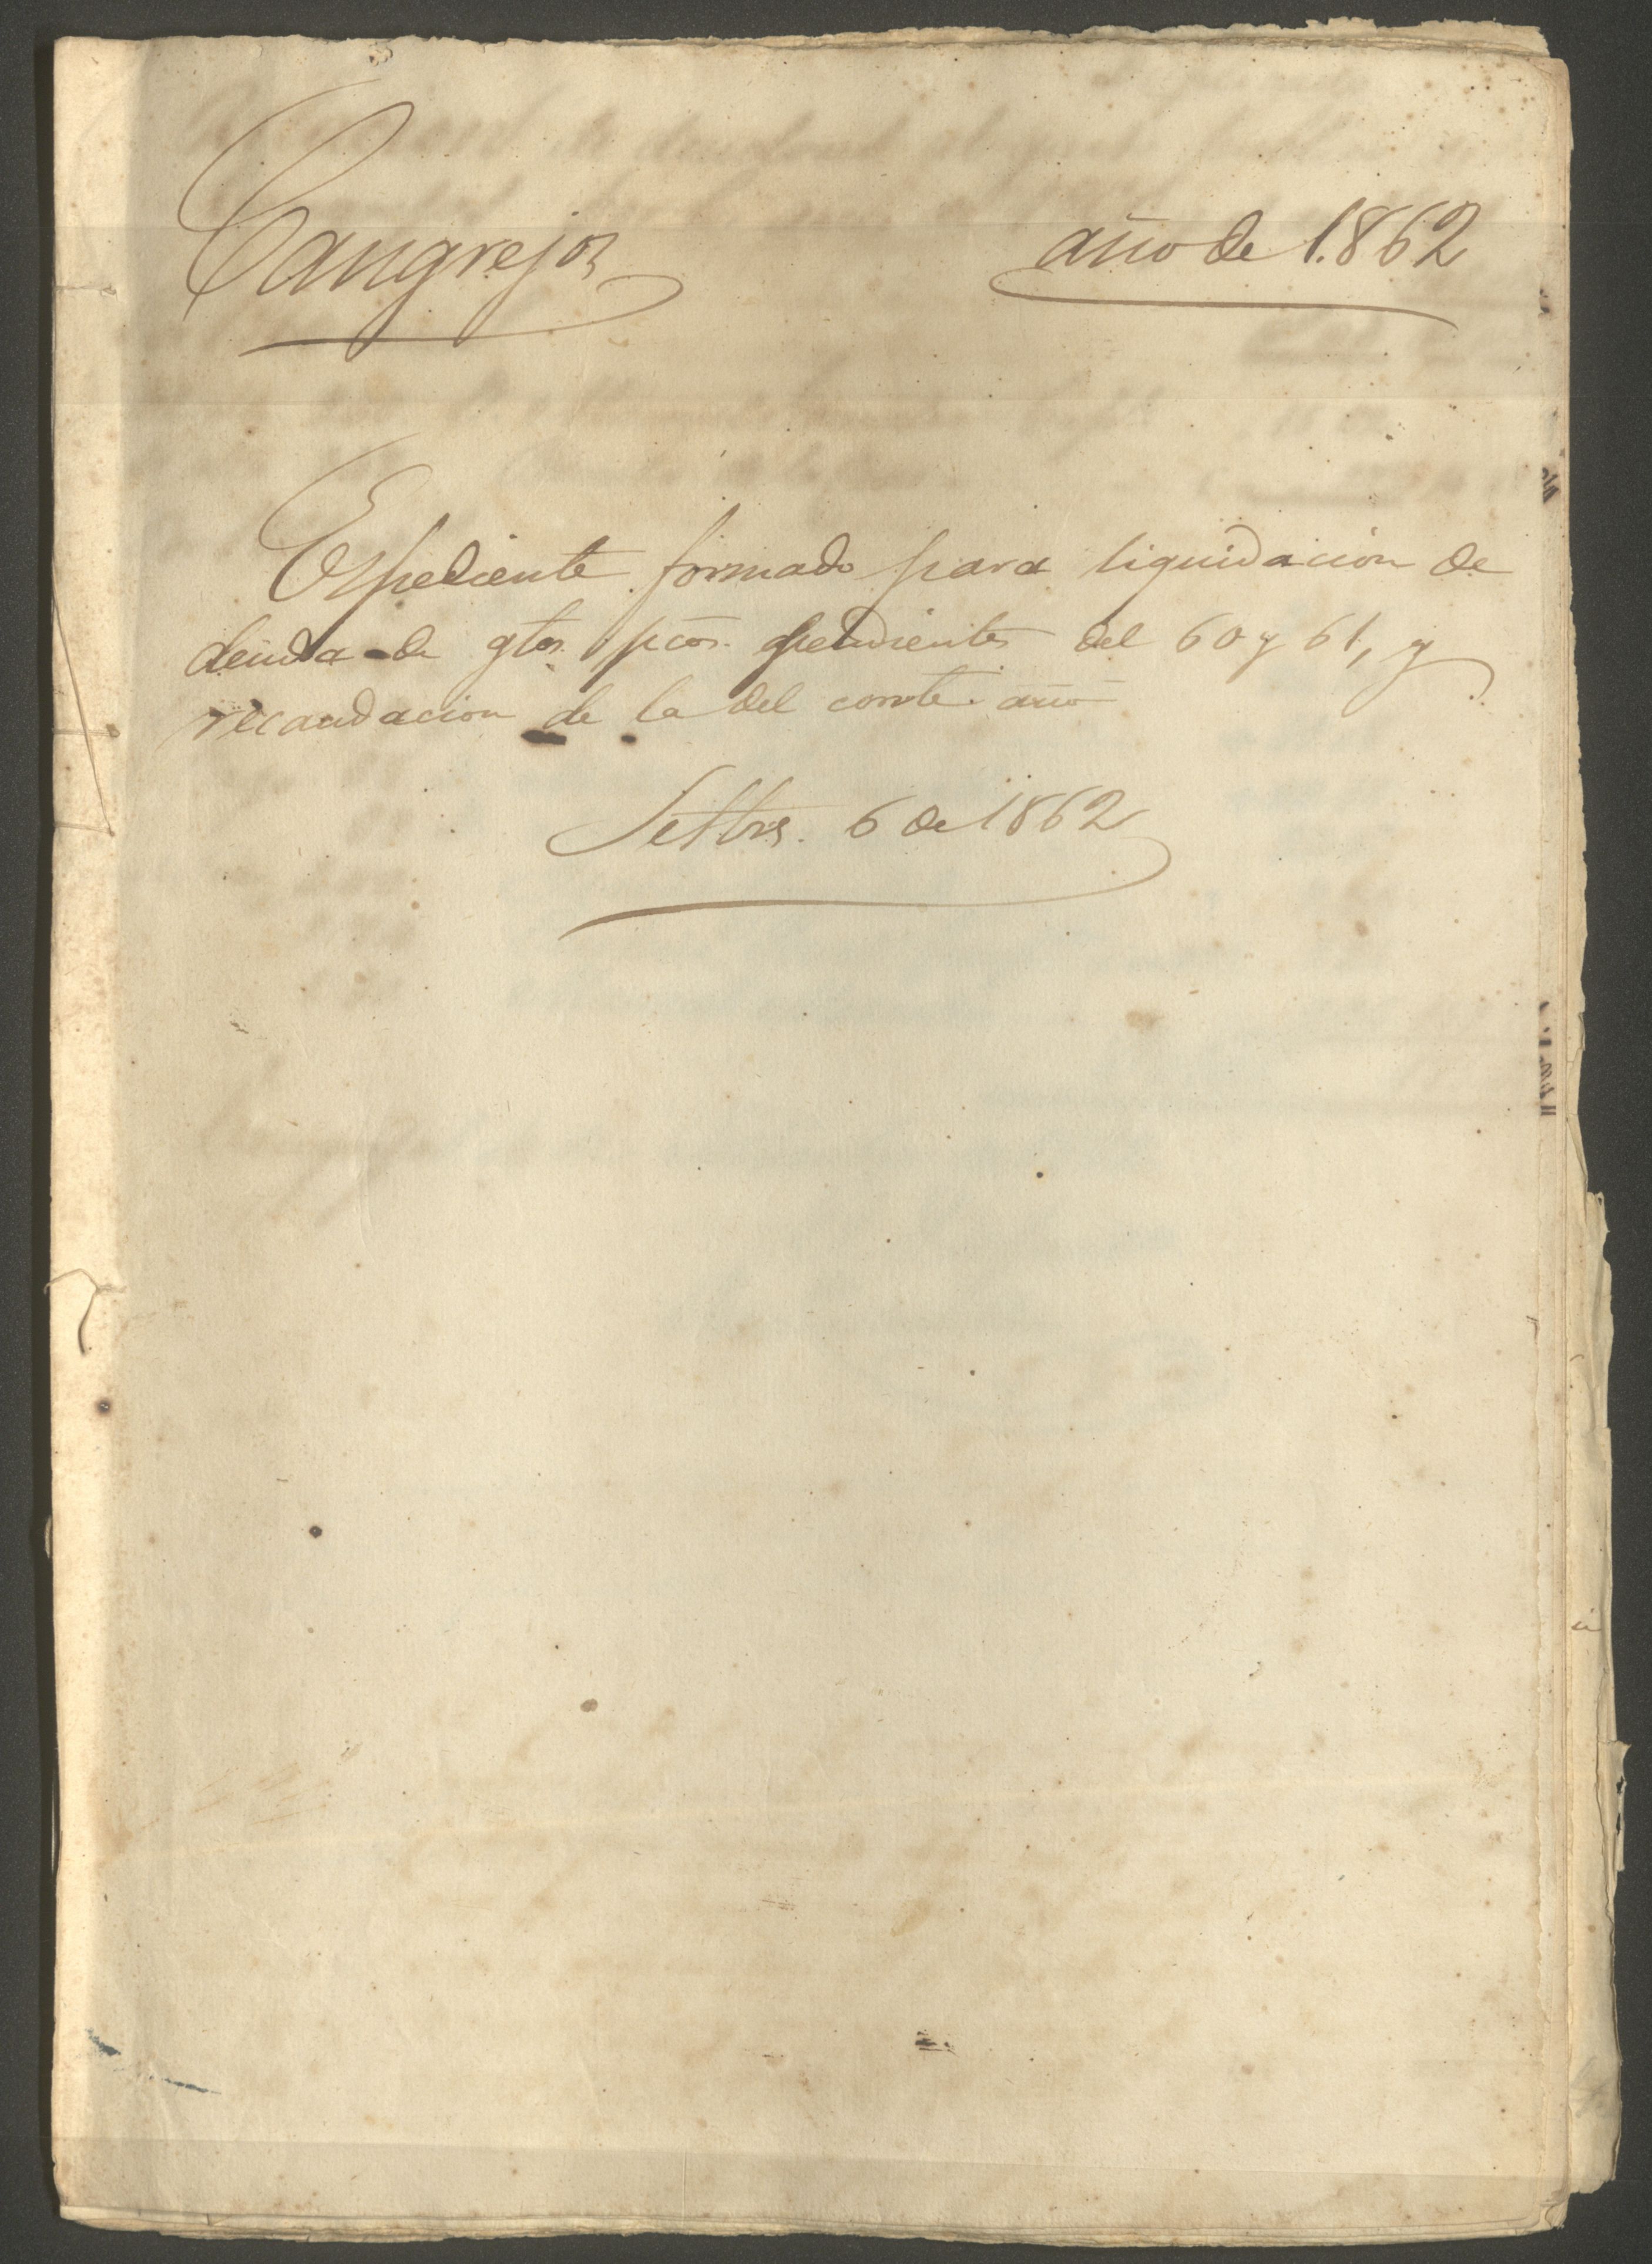 Cangrejos
año de 1.862
Espediente formado para liquidacion de
deuda de gtos. pcos. pendientes del 60 y 61, y
recaudacion de la del corrte. año
Settbre. 6 de 1862